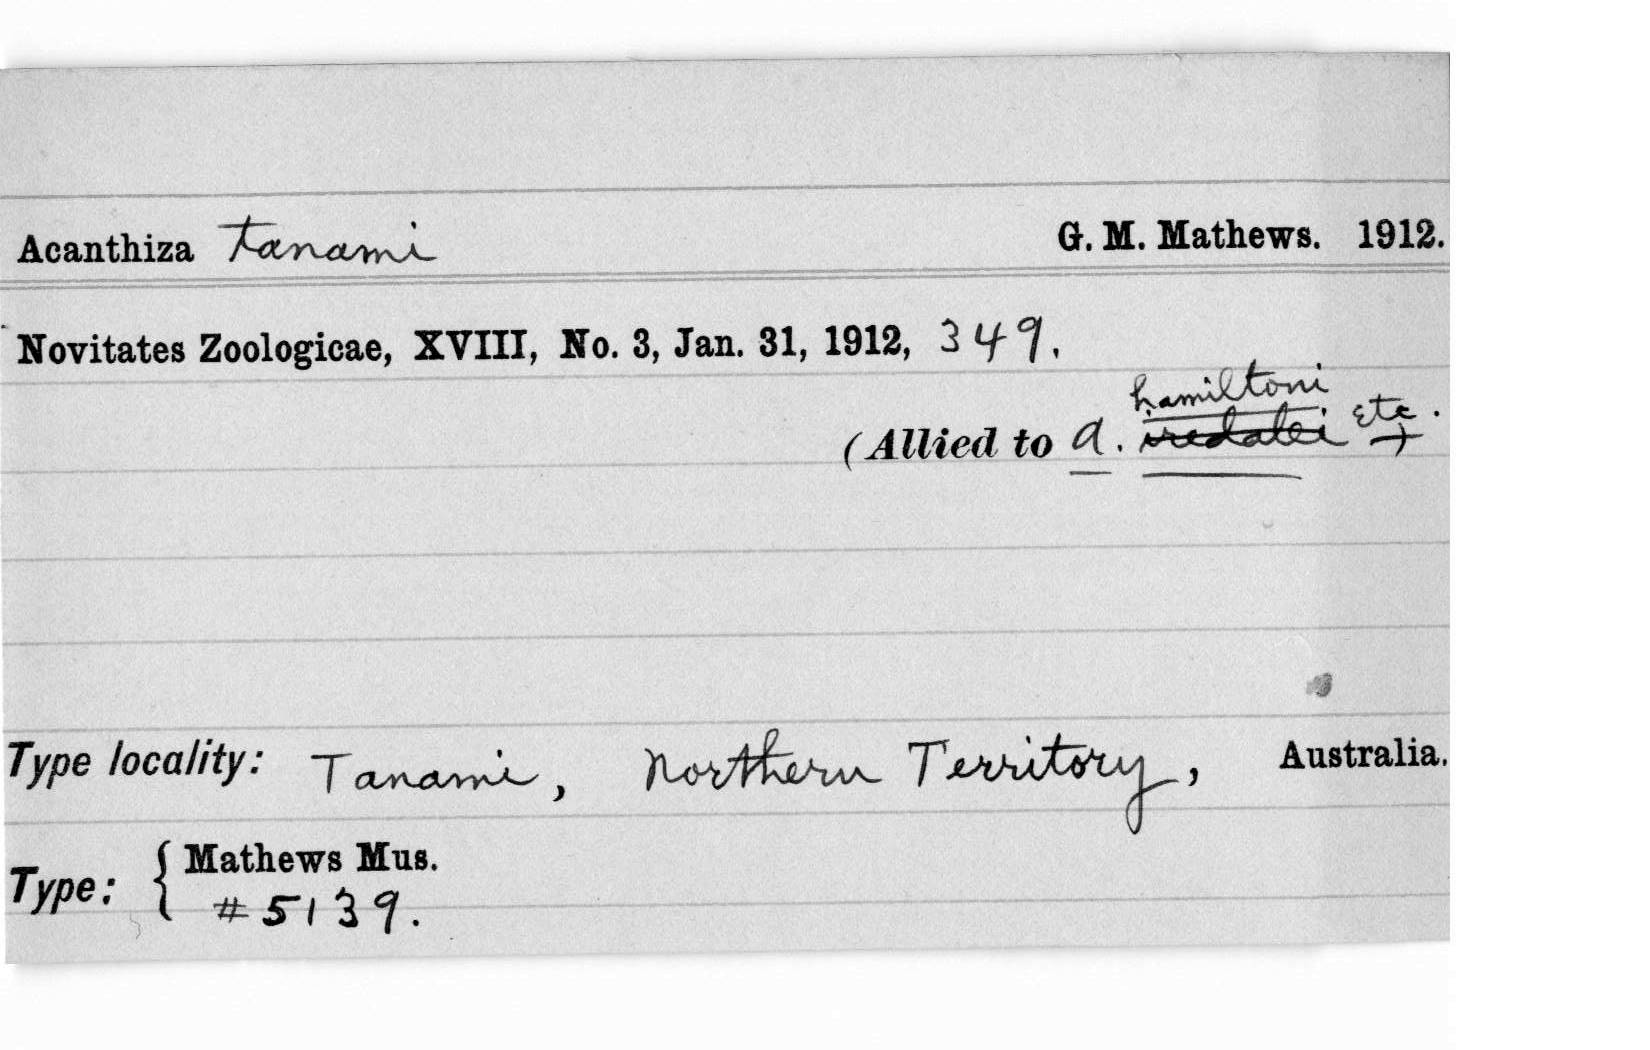 Acanthiza tanami G. M. Mathews. 1912.
Novitates Zoologicae, XVIII, No. 3, Jan. 31, 1912, 349.
hamiltoni
(Allied to A. iredalei etc.)
Type locality: Tanami, Northern Territory, Australia.
Type: { Mathews Mus.
#5139.